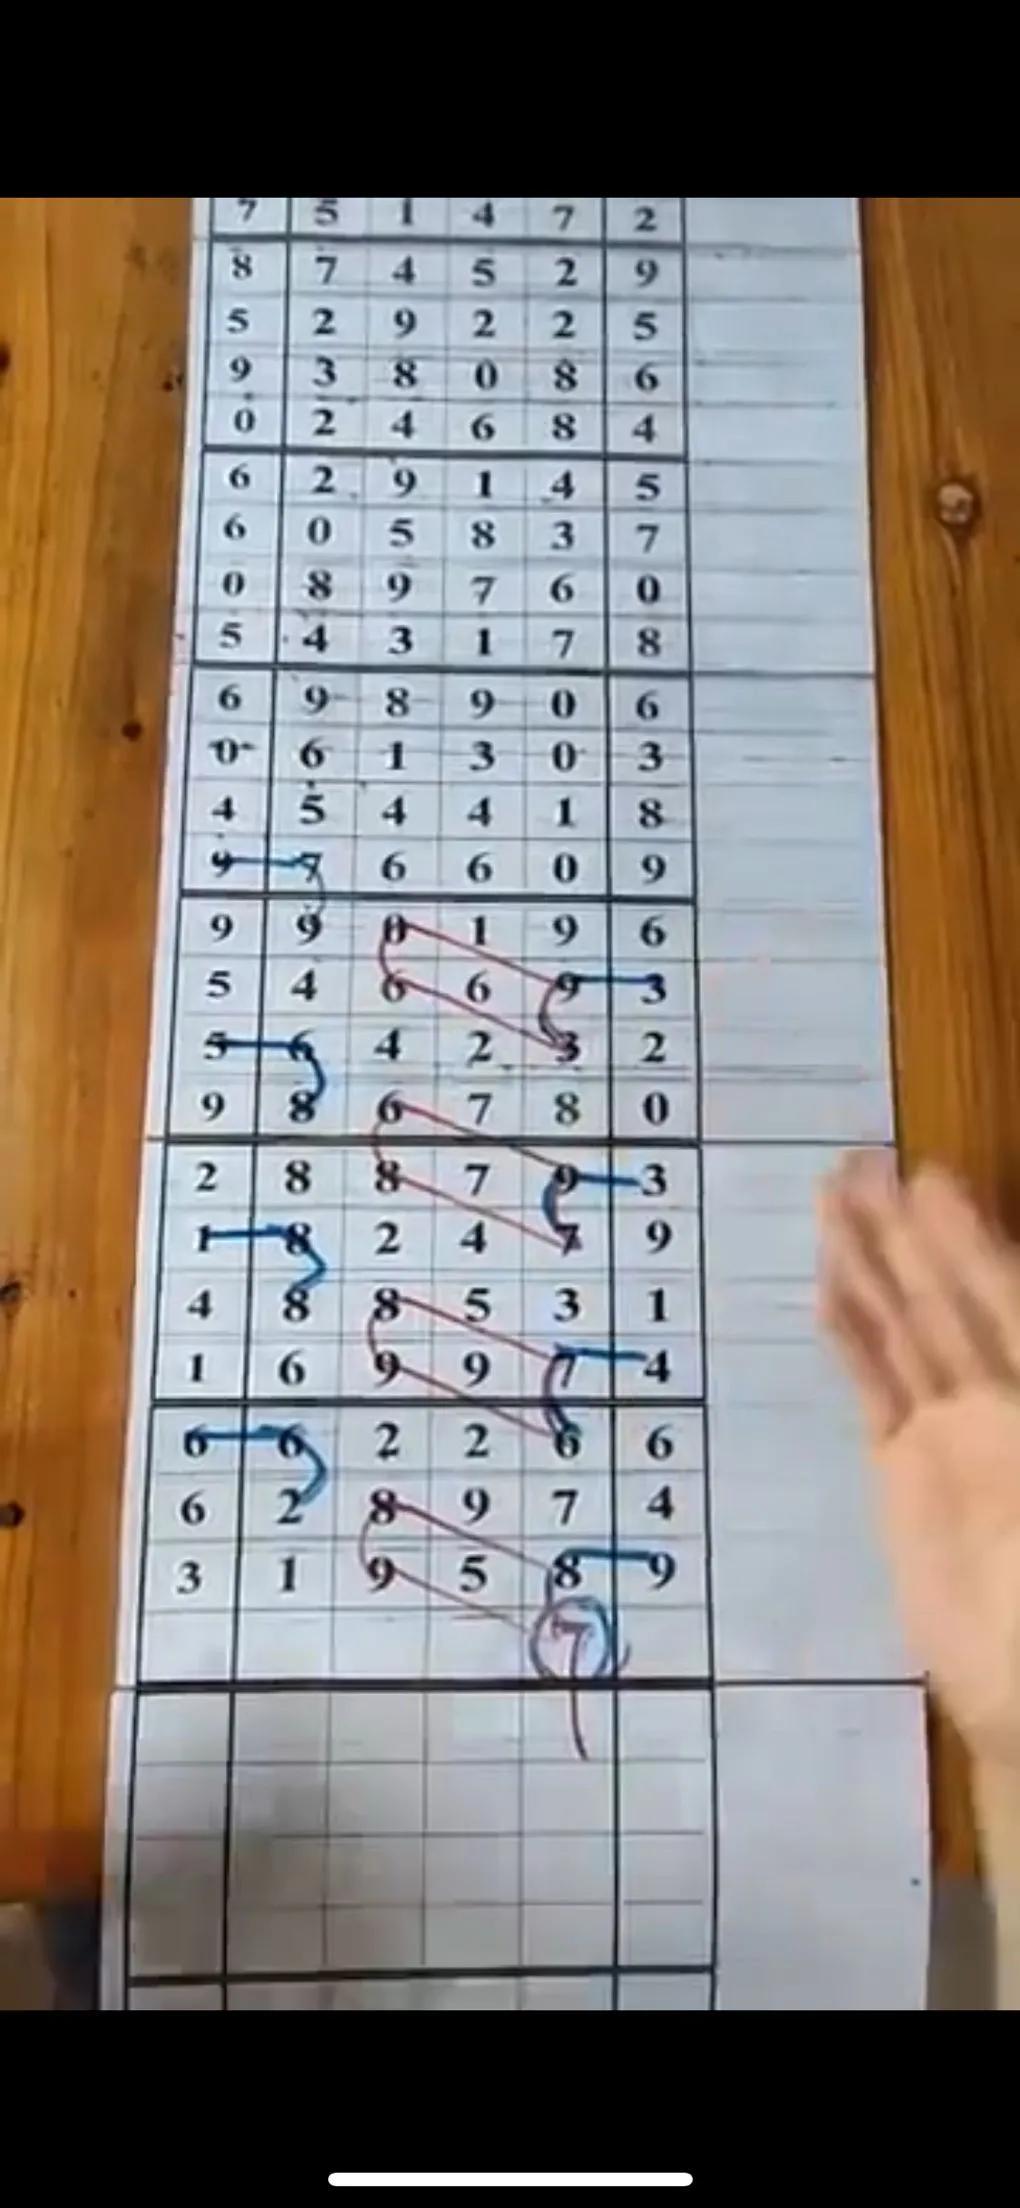 7 5 1 4 7 2
8 7 4 5 2 9
5 2 9 2 2 5
9 3 8 0 8 6
0 2 4 6 8 4
6 2 9 1 4 5
6 0 5 8 3 7
0 8 9 7 6 0
5 4 3 1 7 8
6 9 8 9 0 6
0 6 1 3 0 3
4 5 4 4 1 8
9 7 6 6 0 9
9 9 0 1 9 6
5 4 6 6 9 3
5 6 4 2 3 2
9 8 6 7 8 0
2 8 8 7 9 3
1 8 2 4 7 9
4 8 8 5 3 1
1 6 9 9 7 4
6 6 2 2 6 6
6 2 8 9 7 4
3 1 9 5 8 9
7